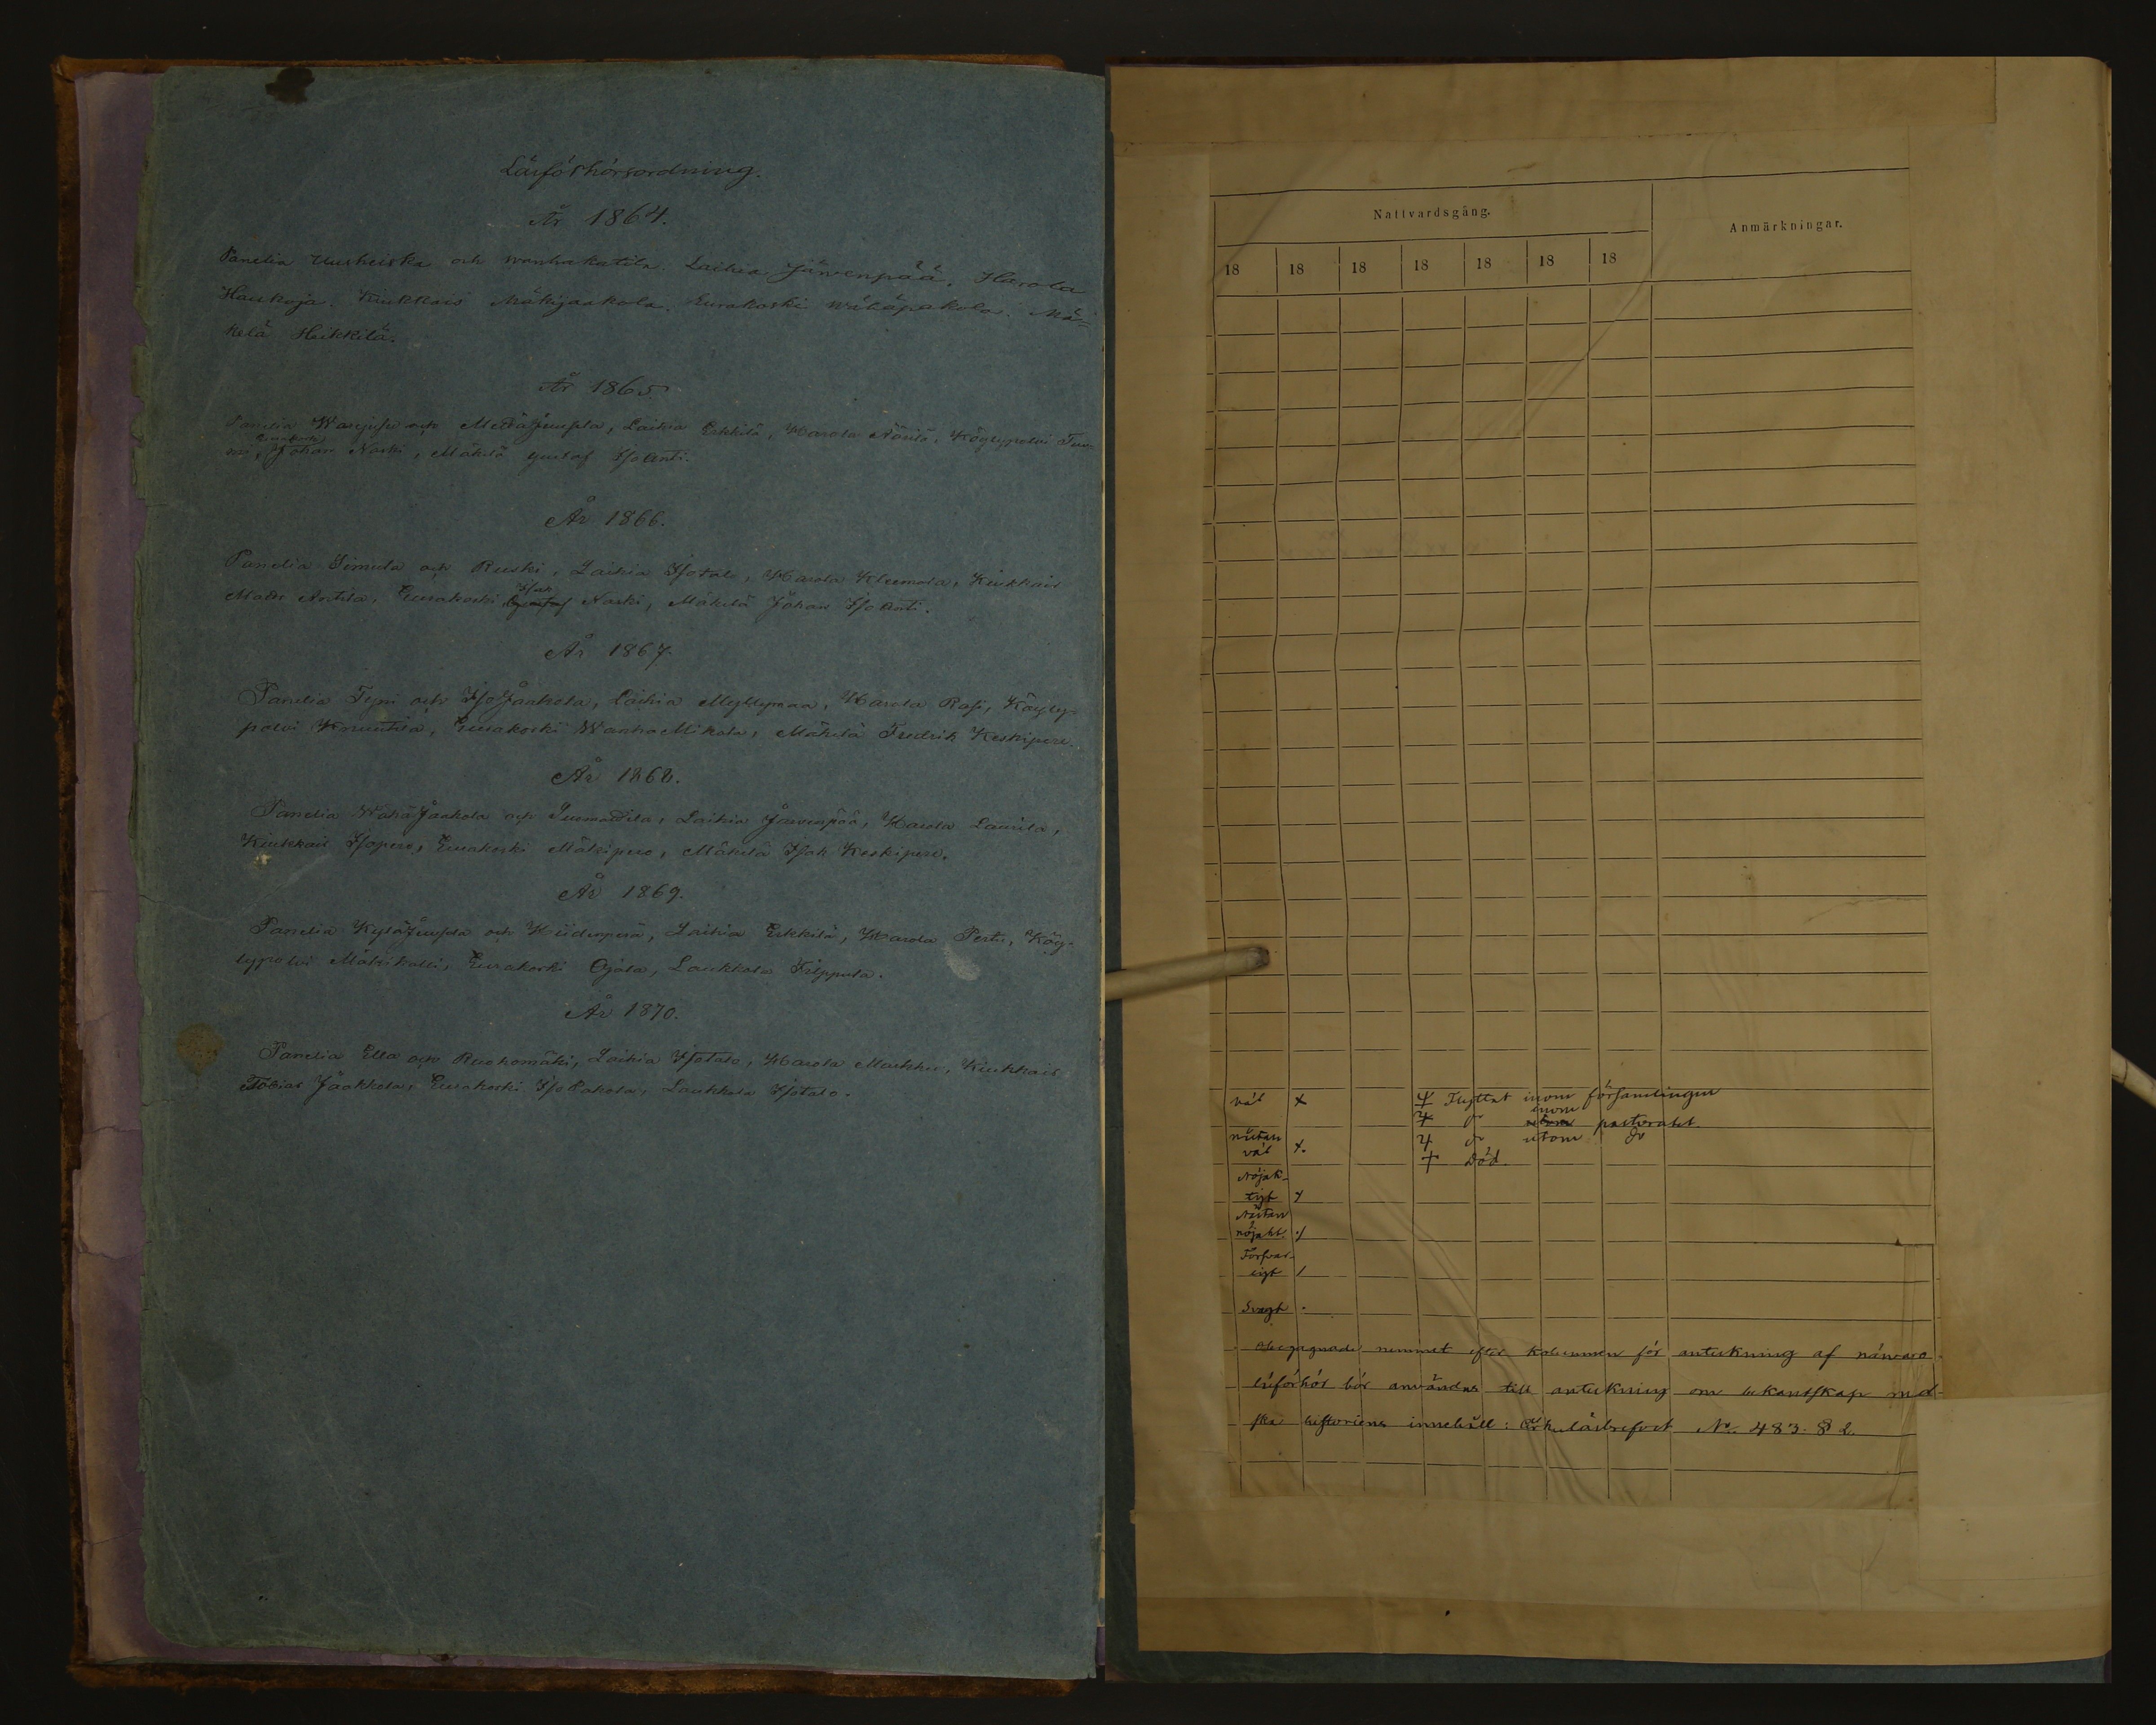 Läsförhörsordning.
År 1864.
Panelia Uusheiska och Wanhakatila. Laihia Järvenpää. Harola
Haukoja. Kiukkais Mäkijaakola. Eurakoski Wähäpakola. Mä-
kelä Heikkilä.
År 1865.
Panelia och Laihia Erkkilä, Harola Nörilä, Köylypolvi Tuo-
mi, Eurakoski Johan Naski, Mäkelä Gustaf Iso Anti.
År 1866.
Panelia Simula och Ruski, Laihia Isotalo, Harola Kleemola, Kiukkais
Matts Antila, Eurakoski Isak Naski, Mäkelä Johan Iso Anti.
År 1867.
Panelia Tyni och IsoJaakola, Laihia Myllymaa, Harola Rasi, Köyly-
polvi Eurakoski WanhaMikola, Mäkelä Fredrik Keskipere.
År 1868.
Panelia WähäJaakola och Laihia Järvenpää, Harola Laurila,
Kiukkais Isopere, Eurakoski Mäkipere, Mäkelä Isak Keskipere.
År 1869.
Panelia KyläJuusela och Hiidenperä, Laihia Erkkilä, Harola Pertu, Köy-
lypolvi Mäkikalli, Eurakoski Ojala, Laukkola Filppula.
År 1870.
Panelia Ella och Ruohomäki, Laihia Isotalo, Harola Markku, Kiukkais
Tobias Jaakkola, Eurakoski Iso Pakola, Laukkola Isotalo.
Nattvardsgång.
Anmärkningar.
18 18 18 18 18 18 18
väl x
Flyttat inom församlingen
do inom pastoratet
nästan
väl x.
do utom do
+ Död.
Nöjak-
tigt y
Nästan
nöjakt. ./
Försvar-
ligt /
Svagt .
nummet efter kolumnen för anteckning af närvaro
läsförhör bör användas till anteckning om bekantskap med
ska historiens innehåll: Cirkulärbrefvet No 483. § 2.